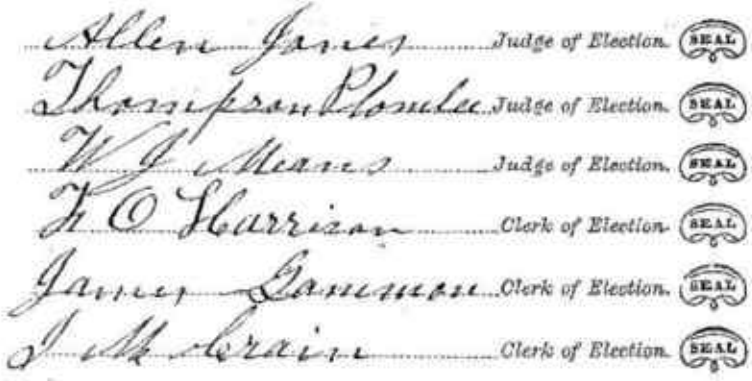 Allen Jones Judge of Election. SEAL
Thompson Plomlee Judge of Election. SEAL
W J Means Judge of Election. SEAL
F. O Harrison Clerk of Election. SEAL
James Gammon Clerk of Election. SEAL
J M Crain Clerk of Election. SEAL